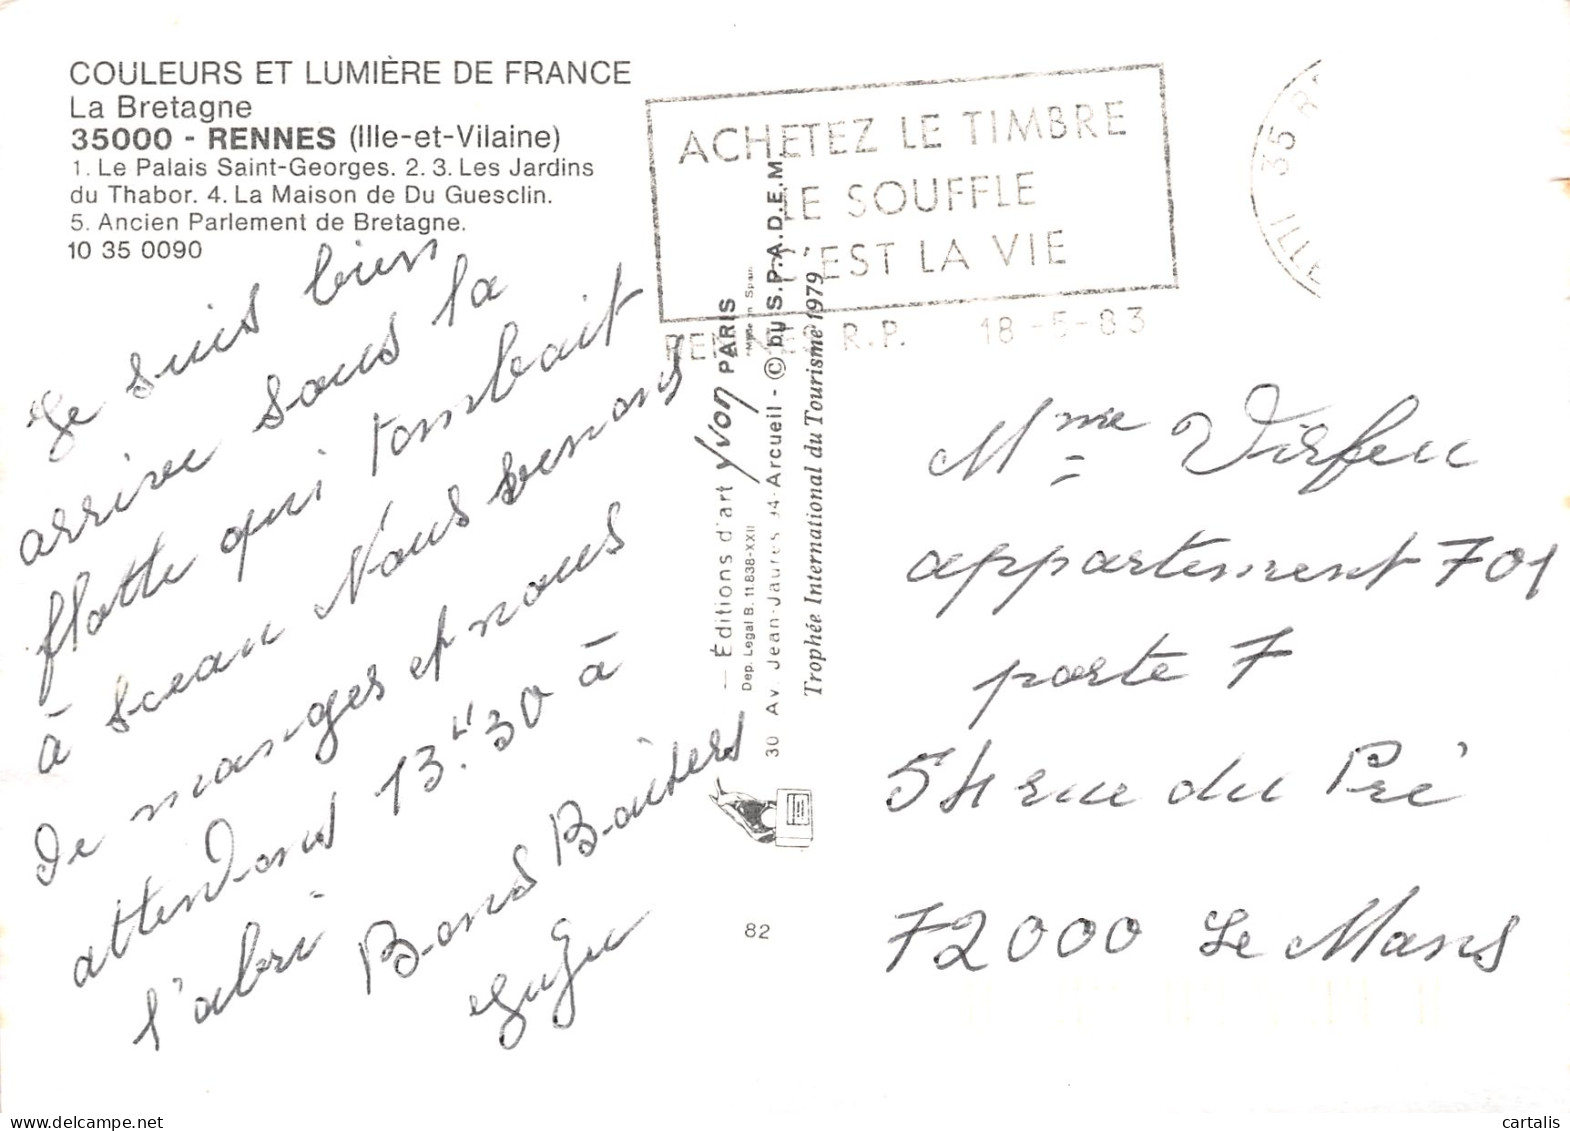 COULEURS ET LUMIÈRE DE FRANCE
La Bretagne
35000 - RENNES (Ille-et-Vilaine)
1. Le Palais Saint-Georges. 2. 3. Les Jardins
du Thabor. 4. La Maison de Du Guesclin.
5. Ancien Parlement de Bretagne.
10 35 0090
Je suis bien
arrivé sous la
flotte qui tombait
à sceau Nous venons
De manges et nous
attendons 13h30 à
l'abri Bons Baisers
ACHETEZ LE TIMBRE
LE SOUFFLE
C'EST LA VIE
RENNES R.P. 18-5-83
35 R
ILLE
— Éditions d'art yvon PARIS
Dep. Legal B. 11.838-XXII "Made in Spain
30 Av. Jean-Jaurès 94-Arcueil - © by S.P.A.D.E.M.
Trophée International du Tourisme 1979
82
Mme
appartement 701
porte 7
54 rue du Pré
72000 Le Mans
cartalis
www.delcampe.net